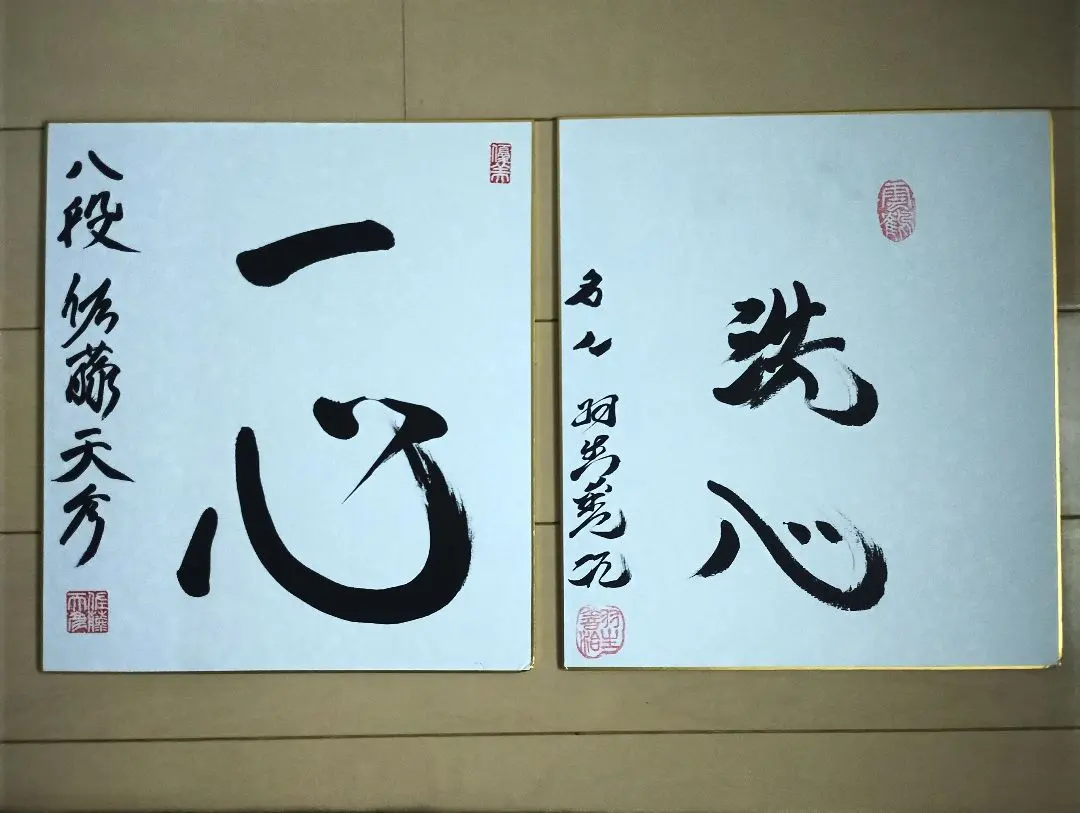 優美
一心
八段 佐藤天彦
佐藤天彦
洗心
名人 羽生善治
羽生善治